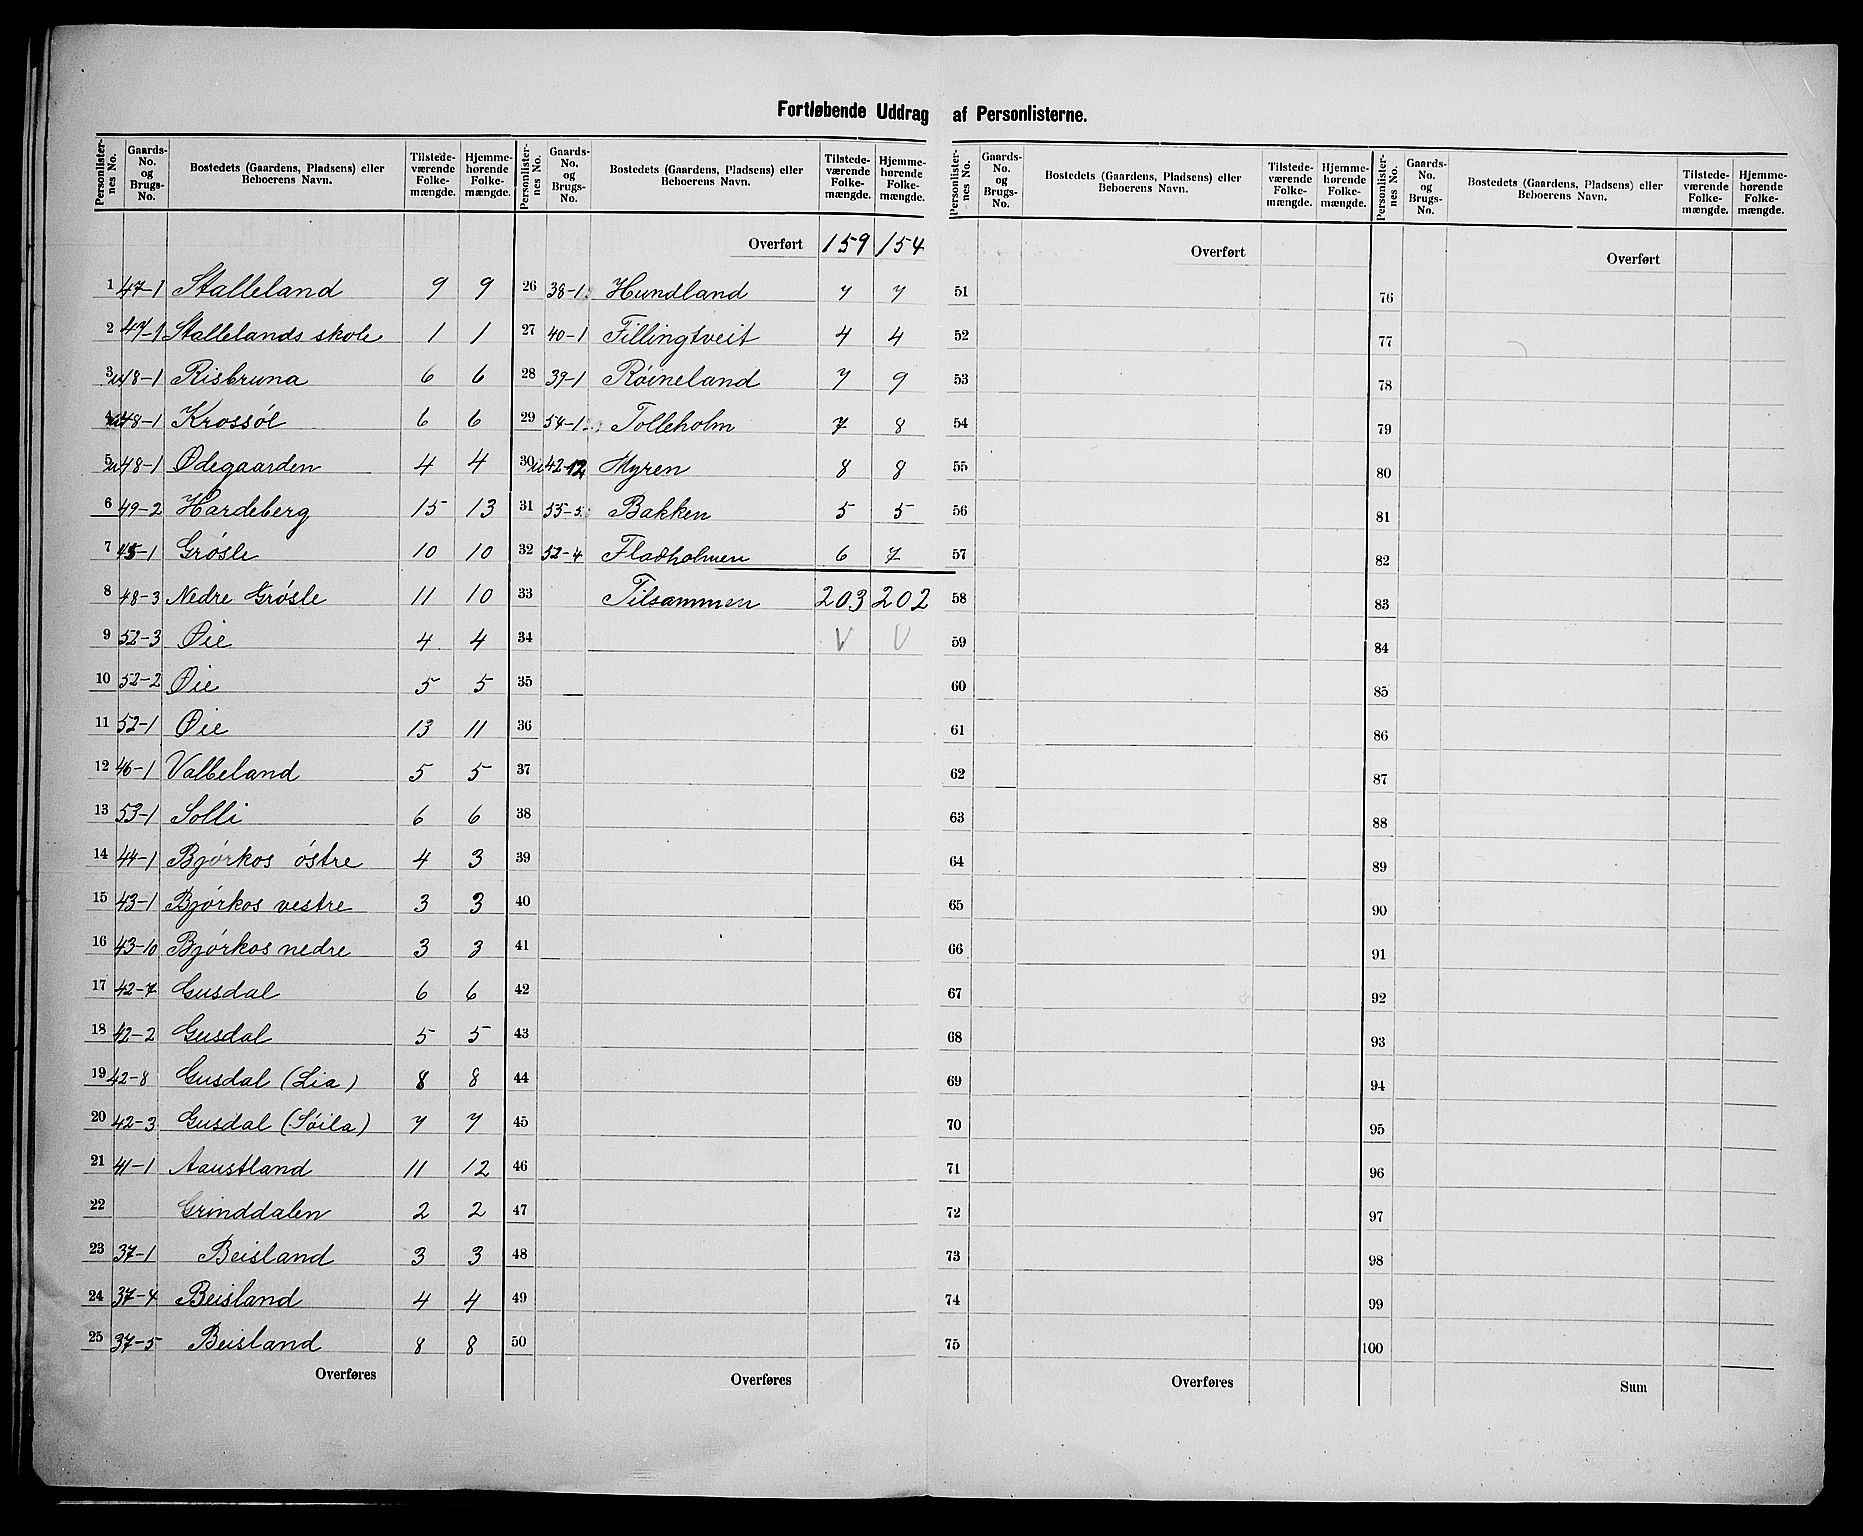 Fortløbende Uddrag af Personlisterne.
Personlister-nes No. | Gaards-No. og Brugs-No. | Bostedets (Gaardens, Pladsens) eller Beboerens Navn. | Tilstede-værende Folke-mængde. | Hjemme-hørende Folke-mængde.
1 47-1 Stalleland 9 9
2 47-1 Stallelands skole 1 1
3 48-1 Risbruna 6 6
4 48-1 Krossøl 6 6
5 48-1 Ødegaarden 4 4
6 49-2 Hardeberg 15 13
7 45-1 Grøsle 10 10
8 48-3 Nedre Grøsle 11 10
9 52-3 Øie 4 4
10 52-2 Øie 5 5
11 52-1 Øie 13 11
12 46-1 Valbeland 5 5
13 53-1 Solli 6 6
14 44-1 Bjørkos østre 4 3
15 43-1 Bjørkos vestre 3 3
16 43-10 Bjørkos nedre 3 3
17 42-7 Gusdal 6 6
18 42-2 Gusdal 5 5
19 42-8 Gusdal (Lia) 8 8
20 42-3 Gusdal (Søila) 7 7
21 41-1 Aaustland 11 12
22 Grinddalen 2 2
23 37-1 Beisland 3 3
24 37-4 Beisland 4 4
25 37-5 Beisland 8 8
Overføres
Personlister-nes No. | Gaards-No. og Brugs-No. | Bostedets (Gaardens, Pladsens) eller Beboerens Navn. | Tilstede-værende Folke-mængde. | Hjemme-hørende Folke-mængde.
Overført 159 154
26 38-1 Hundland 7 7
27 40-1 Fillingtveit 4 4
28 39-1 Røineland 7 9
29 54-1 Tolleholm 7 8
30 42-12 Myren 8 8
31 55-5 Bakken 5 5
32 52-4 Fladholmen 6 7
33 Tilsammen 203 202
34 V V
35
36
37
38
39
40
41
42
43
44
45
46
47
48
49
50
Overføres
Personlister-nes No. | Gaards-No. og Brugs-No. | Bostedets (Gaardens, Pladsens) eller Beboerens Navn. | Tilstede-værende Folke-mængde. | Hjemme-hørende Folke-mængde.
Overført
51
52
53
54
55
56
57
58
59
60
61
62
63
64
65
66
67
68
69
70
71
72
73
74
75
Overføres
Personlister-nes No. | Gaards-No. og Brugs-No. | Bostedets (Gaardens, Pladsens) eller Beboerens Navn. | Tilstede-værende Folke-mængde. | Hjemme-hørende Folke-mængde.
Overført
76
77
78
79
80
81
82
83
84
85
86
87
88
89
90
91
92
93
94
95
96
97
98
99
100
Sum